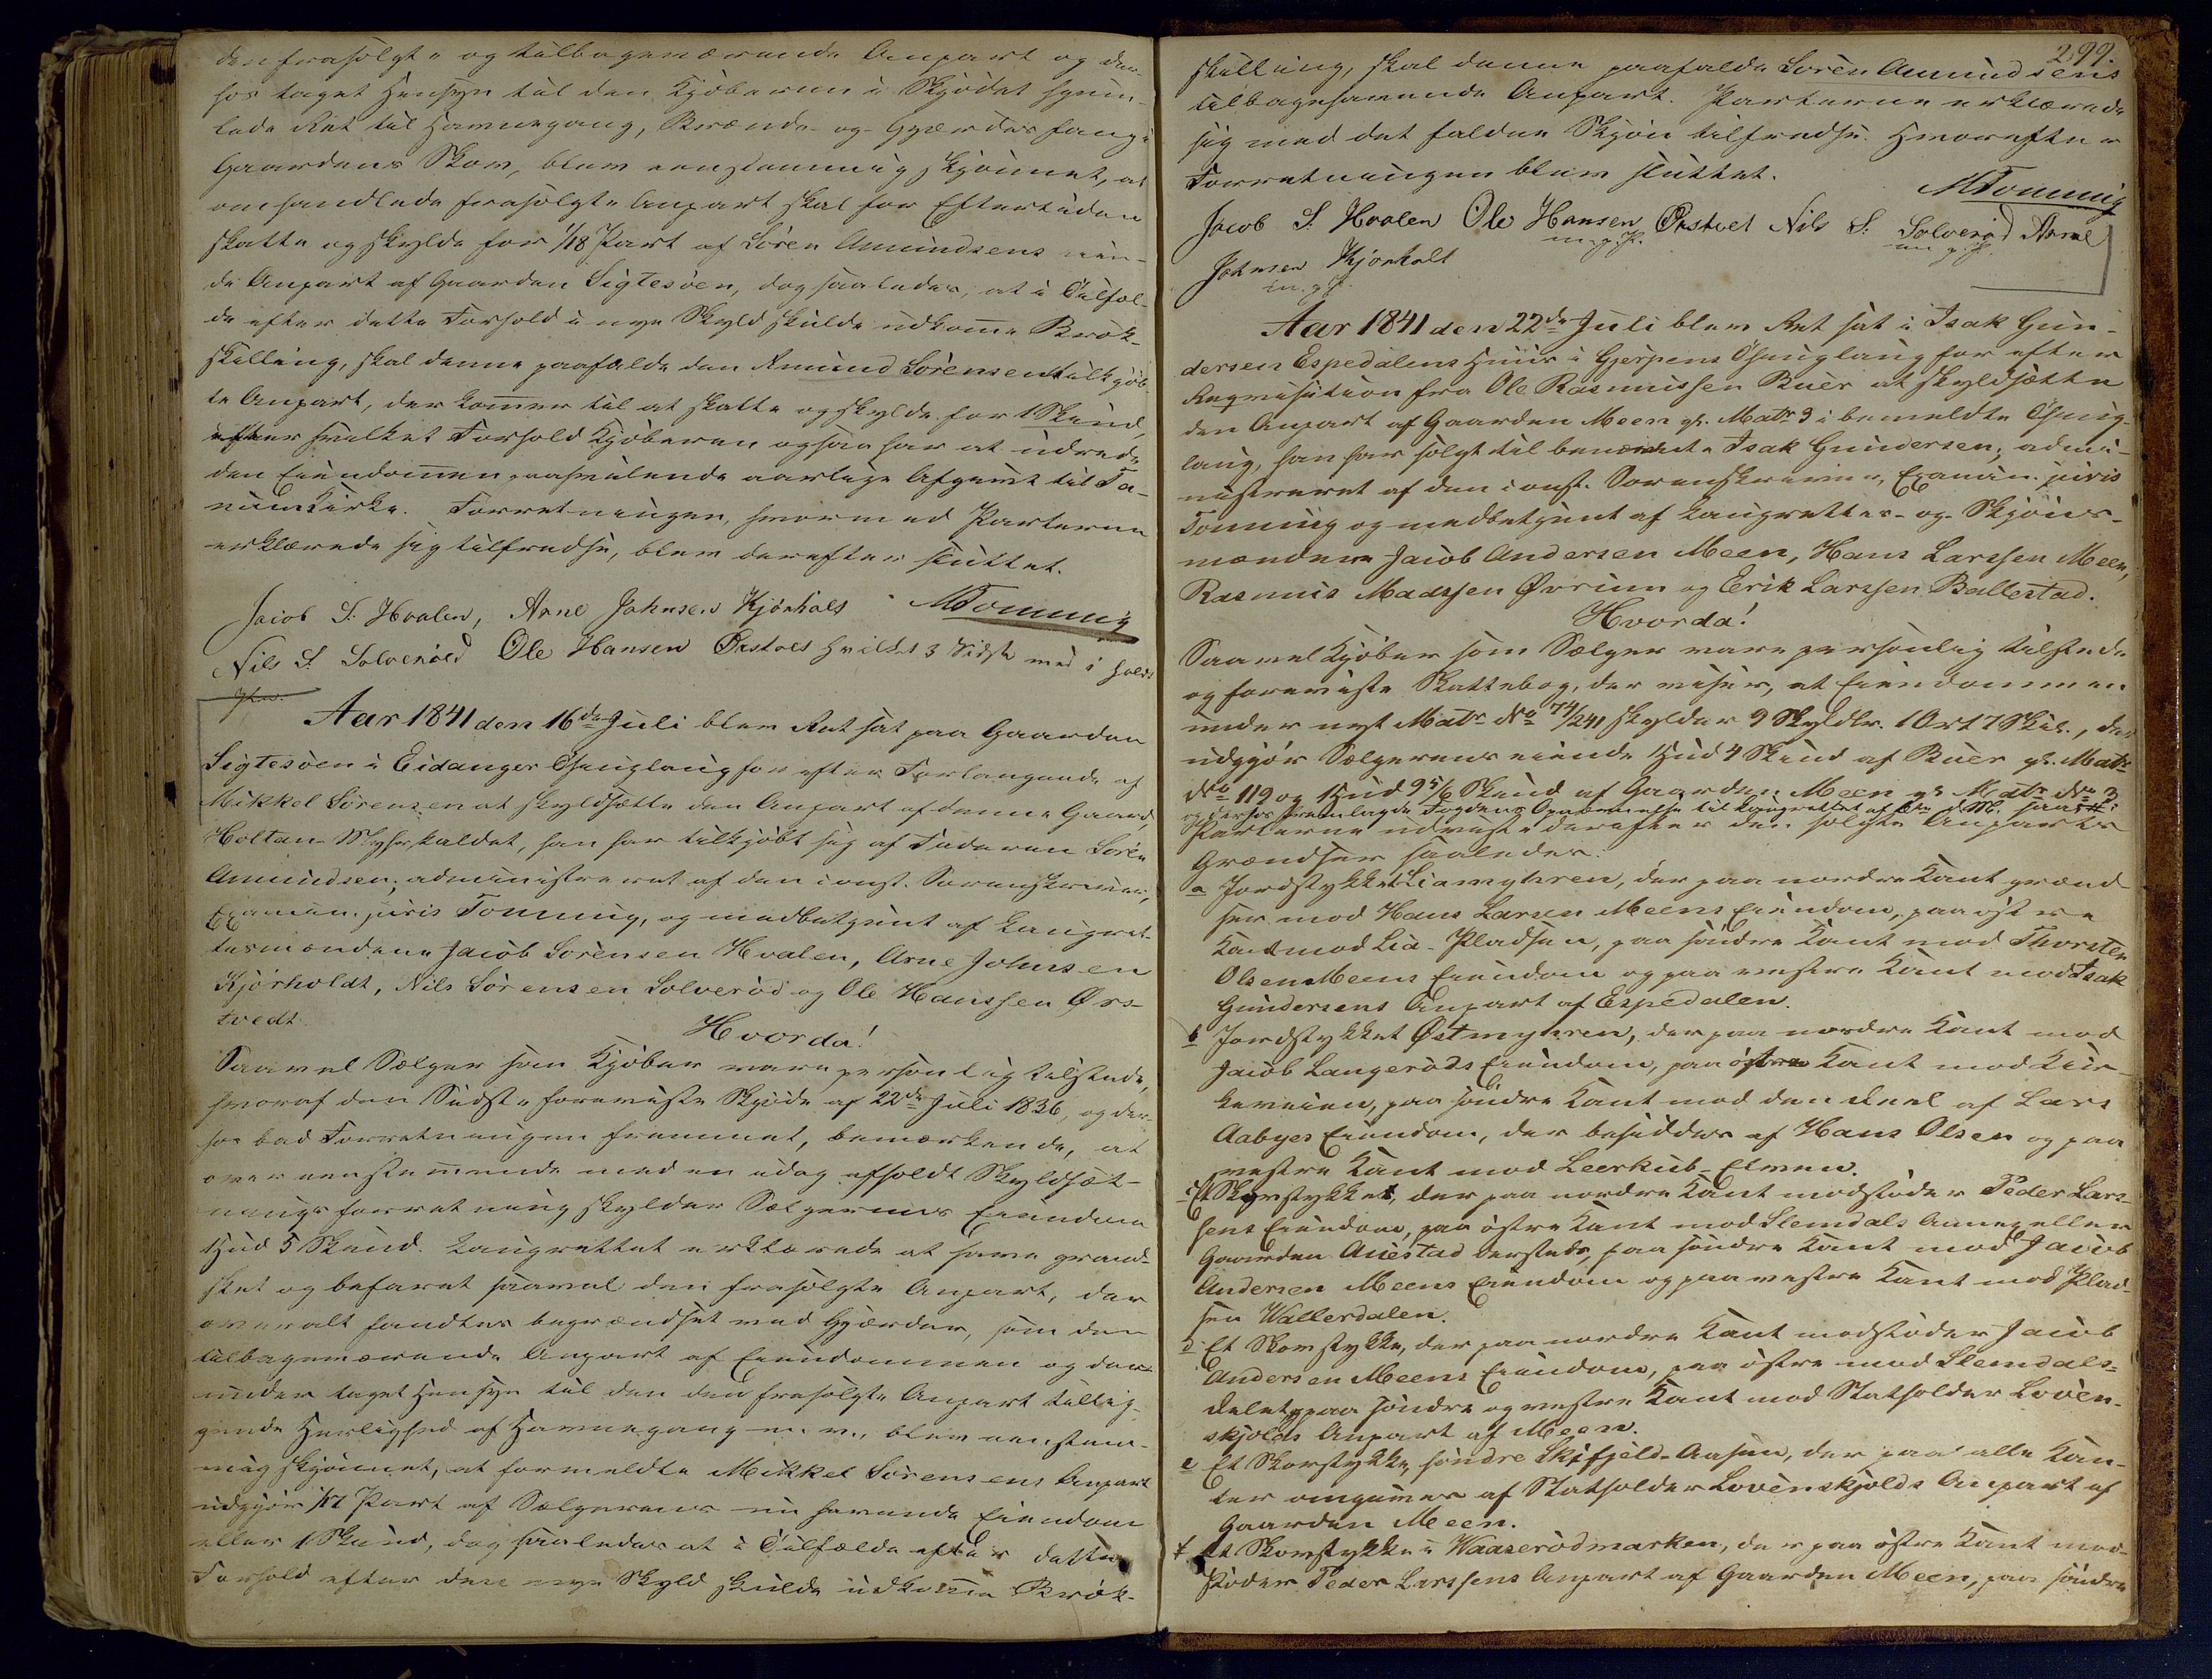 den frasolgte og tilbageværende Anpart og der-
hos taget Hensyn til den Kjøberen i Skjødet hjem-
lede Ret til Havnegang, Brænde- og Gjærdesfang i
Gaardens Skov, blev eenstemmig skjønnet, at
omhandlede frasolgte Anpart skal for Eftertiden
skatte og skylde for 1/18 Part af Sören Amundsens eien-
de Anpart af Gaarden Sigtesöen, dog saaledes, at i Tilfæl-
de efter dette Forhold i nye Skyld skulde udkomme Brøk-
skilling, skal denne paafalde den Amund Sörensen tilkjøb-
te Anpart, der kommer til at skatte og skylde for 1 Skind,
efter hvilket Forhold Kjøberen ogsaa har at udrede
den Eiendommen paahvilende aarlige Afgivt til Ta-
num Kirke. Forretningen, hvormed Parterne
erklærede sig tilfredse, blev derefter sluttet.
Jacob S. Hvalen, Arne Johnsen Kjönholt MTonning
Nils S. Solveröed Ole Hansen Örstvet hvilket 3 Sidste med i hold
Pen.
Aar 1841 den 16de Juli blev Ret sat paa Gaarden
Sigtesöen i Eidanger Thinglaug for efter Forlangende af
Mikkel Sörensen at skyldsætte den Anpart af denne Gaard,
Holtan kaldet, han har tilkjøbt sig af Faderen Sören
Amundsen; administreret af den const. Sorenskriver,
Examin. juris Tonning, og medbetjent af Laugret-
tesmændene Jacob Sörensen Hvalen, Arne Johnsen
Kjörholdt, Nils Sörensen Solveröd og Ole Hanssen Örs-
tvedt.
Hvorda!
Saavel Sælger som Kjøber vare personlig tilstede,
hvoraf den Sidste foreviste Skjøde af 22de Juli 1836, og der-
hos bad Forretningen fremmet, bemærkende, at
overeenstemmende med en idag afholdt Skyldsæt-
ningsforretning skylder Sælgerens Eiendom
1 Hud 5 Skind. Laugrettet erklærede at have grand-
sket og befaret saavel den frasolgte Anpart, der
overalt fandtes begrændset med Gjærder, som den
tilbageværende Anpart af Eiendommen og der-
under taget Hensyn til den den frasolgte Anpart tillig-
gende Herlighed af Havnegang m. v., blev eenstem-
mig skjønnet, at formeldte Mikkel Sörensens Anpart
udgjør 1/17 Part af Sælgerens nu havende Eiendom
eller 1 Skind, dog saaledes at i Tilfælde efter dette
Forhold efter den nye Skyld skulde udkomme Brøk-
299.
skilling, skal denne paafalde Sören Amundsens
tilbagehavende Anpart. Parterne erklærede
sig med det faldne Skjøn tilfredse. Hvorefter
Forretningen blev sluttet.
MTonning
Jacob S. Hvalen Ole Hansen Örstvet Nils S. Solveröd Arne
m. p. P. m. p. P.
Johnsen Kjönholt
m. p. P.
Aar 1841 den 22de Juli blev Ret sat i Isak Gun-
dersen Espedalens Huus i Gjerpens Thinglaug for efter
Requisition fra Ole Rasmussen Buer at skyldsætte
den Anpart af Gaarden Meen gl. Matr 3 i bemeldte Thing-
laug, han har solgt til benævnte Isak Gundersen; admi-
nistreret af den const. Sorenskriver, Examin. juris
Tonning og medbetjent af Laugrettes- og Skjøns-
mændene Jacob Andersen Meen, Hans Larssen Meen,
Rasmus Madssen Övrium og Erik Larssen Ballestad.
Hvorda!
Saavel Kjøber som Sælger vare personlig tilstede
og foreviste Skattebog, der viser, at Eiendommen
under nyt Matr No 74/241 skylder 9 Skyldlr. 1 Ort 7 Skil., der
udgjør Sælgerens eiende Hud 4 Skind af Buer gl. Matr
No 119 og 1 Hud 9 5/6 Skind af Gaarden Meen gl. Matr No 3
og derhos fremlagde Fogdens Opnævnelse til Laugrettet af d. M. saal.
Parterne udviste derefter den solgte Anparts
Grændser saaledes:
a Jordstykket Liamyhren, der paa nordre Kant grænd-
ser mod Hans Larsen Meens Eiendom, paa östre
Kant mod Lia-Pladsen, paa söndre Kant mod Thorsten
Olsen Meens Eiendom og paa vestre Kant mod Isak
Gundersens Anpart af Espedalen.
b Jordstykket Östmyhren, der paa nordre Kant mod
Jacob Langeröds Eiendom, paa östre Kant mod Kir-
keveien, paa söndre Kant mod den Deel af Lars
Aabyes Eiendom, der besiddes af Hans Olsen og paa
vestre Kant mod Leerkub-Elven.
c Et Skovstykke, der paa nordre Kant modstöder Peder Lars-
sens Eiendom, paa östre Kant mod Slemdals Annex eller
Gaarden Auestad sammesteds, paa söndre Kant mod Jacob
Andersen Meens Eiendom og paa vestre Kant mod Plad-
sen Wallerdalen.
d Et Skovstykke, der paa nordre Kant modstöder Jacob
Andersen Meens Eiendom, paa östre mod Slemdals-
delet, paa söndre og vestre Kant mod Statholder Löven-
skjolds Anpart af Meen.
e Et Skovstykke, söndre Skifjeld-Aasen, der paa alle Kan-
ter omgives af Statholder Lövenskjolds Anpart af
Gaarden Meen.
f Et Skovstykke i Waaserödmarken, der paa östre Kant mod-
stöder Peder Larssens Anpart af Gaarden Meen, paa söndre